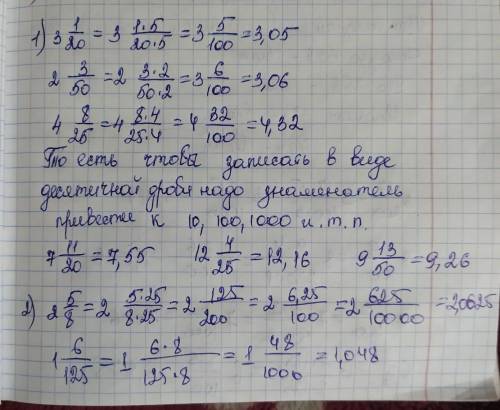 1) 3 1/20 = 3 1·5/20·5 = 3 5/100 = 3,05
2 3/50 = 2 3·2/50·2 = 3 6/100 = 3,06
4 8/25 = 4 8·4/25·4 = 4 32/100 = 4,32
То есть чтобы записать в виде
десятичной дроби надо знаменатель
привести к 10, 100, 1000 и.т.п.
7 11/20 = 7,55 12 4/25 = 12,16 9 13/50 = 9,26
2) 2 5/8 = 2 5·25/8·25 = 2 125/200 = 2 6,25/100 = 2 625/10000 = 2,0625
1 6/125 = 1 6·8/125·8 = 1 48/1000 = 1,048